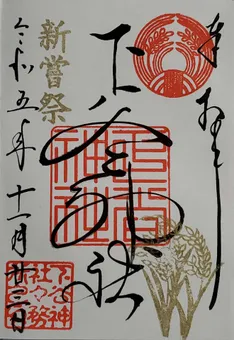 奉拝
下谷神社
新嘗祭
令和五年十一月廿三日
下谷神社
下谷神社社務所